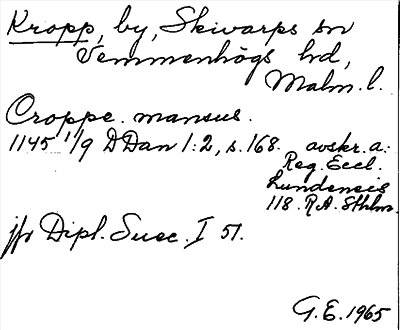 Kropp, by, Skivarps sn
Vemmenhögs hd,
Malm. l.
Croppe. mansus.
1145 1/9 DDan 1:2, s. 168. avskr. a:
Reg. Eccl.
Lundensis
118. R.A. Sthlm.
jfr Dipl. Suec. I 51.
G.E. 1965